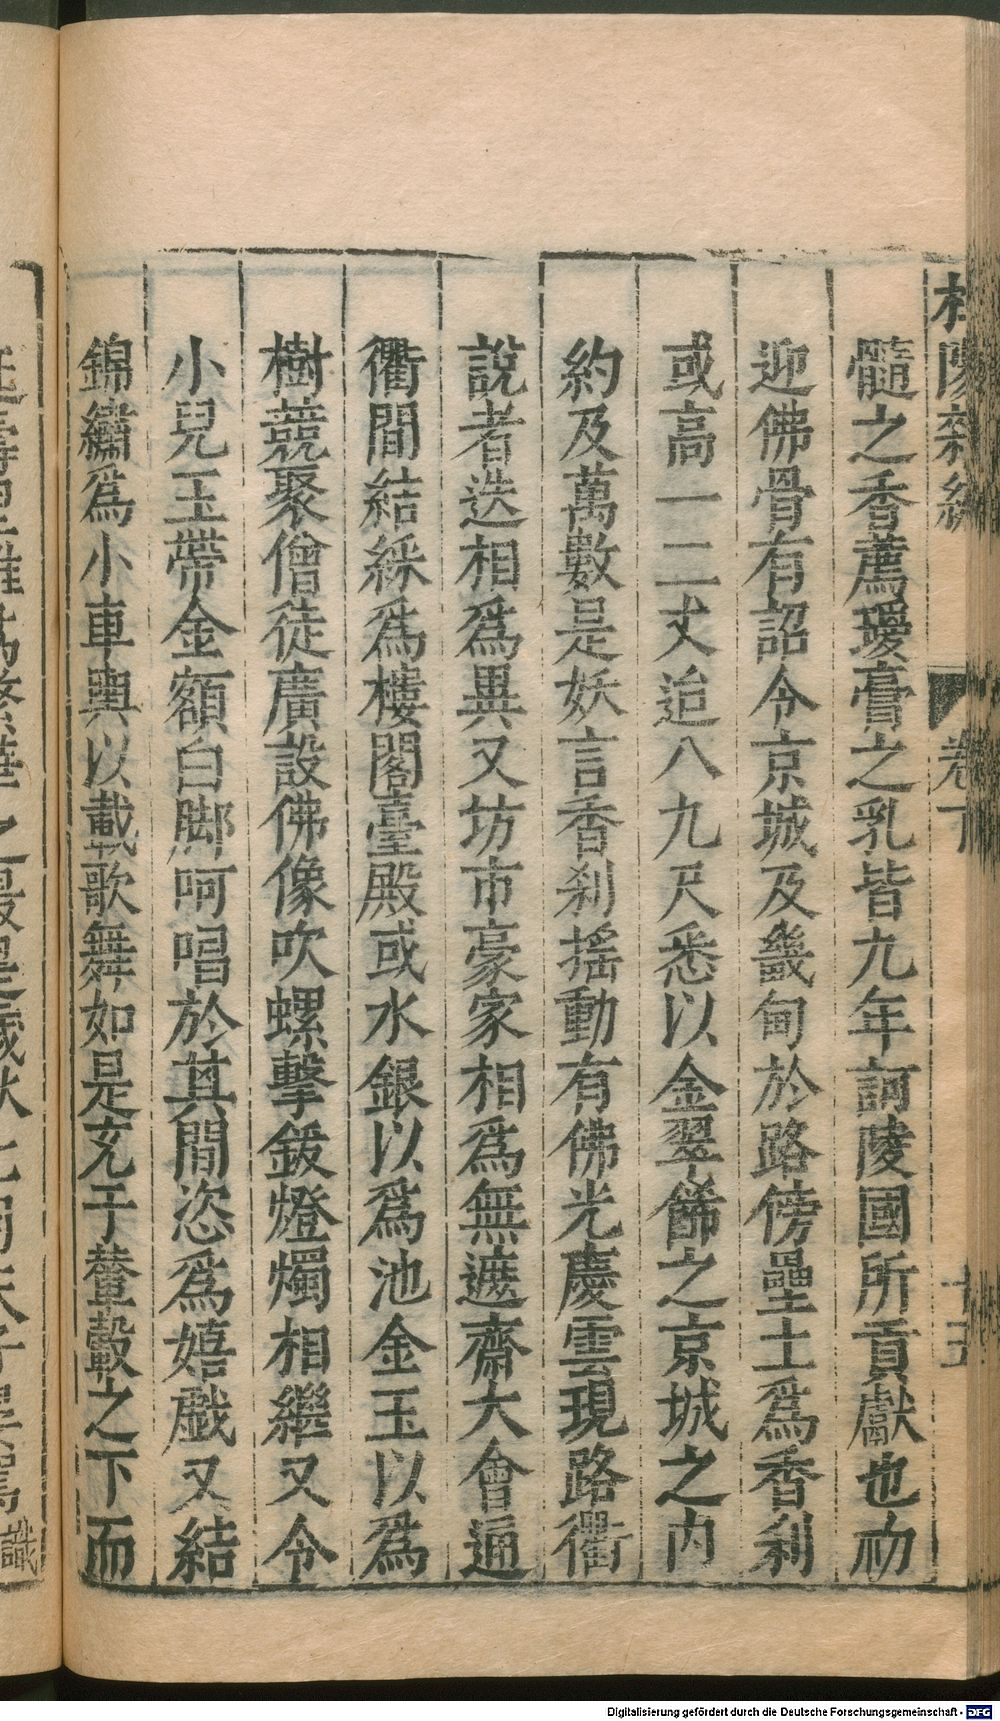 杜陽雜編
卷下
髓之香薦瓊膏之乳皆九年訶陵國所貢獻也初
迎佛骨有詔令京城及畿甸於路傍壘土爲香刹
或高一二丈迨八九尺悉以金翠飾之京城之内
約及萬數是妖言香刹搖動有佛光慶雲現路衢
說者迭相爲異又坊市豪家相爲無遮齋大會通
衢間結綵爲樓閣臺殿或水銀以爲池金玉以爲
樹競聚僧徒廣設佛像吹螺擊鈸燈燭相繼又令
小兒玉帶金額白脚呵唱於其間恣爲嬉戲又結
錦繡爲小車輿以載歌舞如是充于輦轂之下而
識
Digitalisierung gefördert durch die Deutsche Forschungsgemeinschaft - DFG